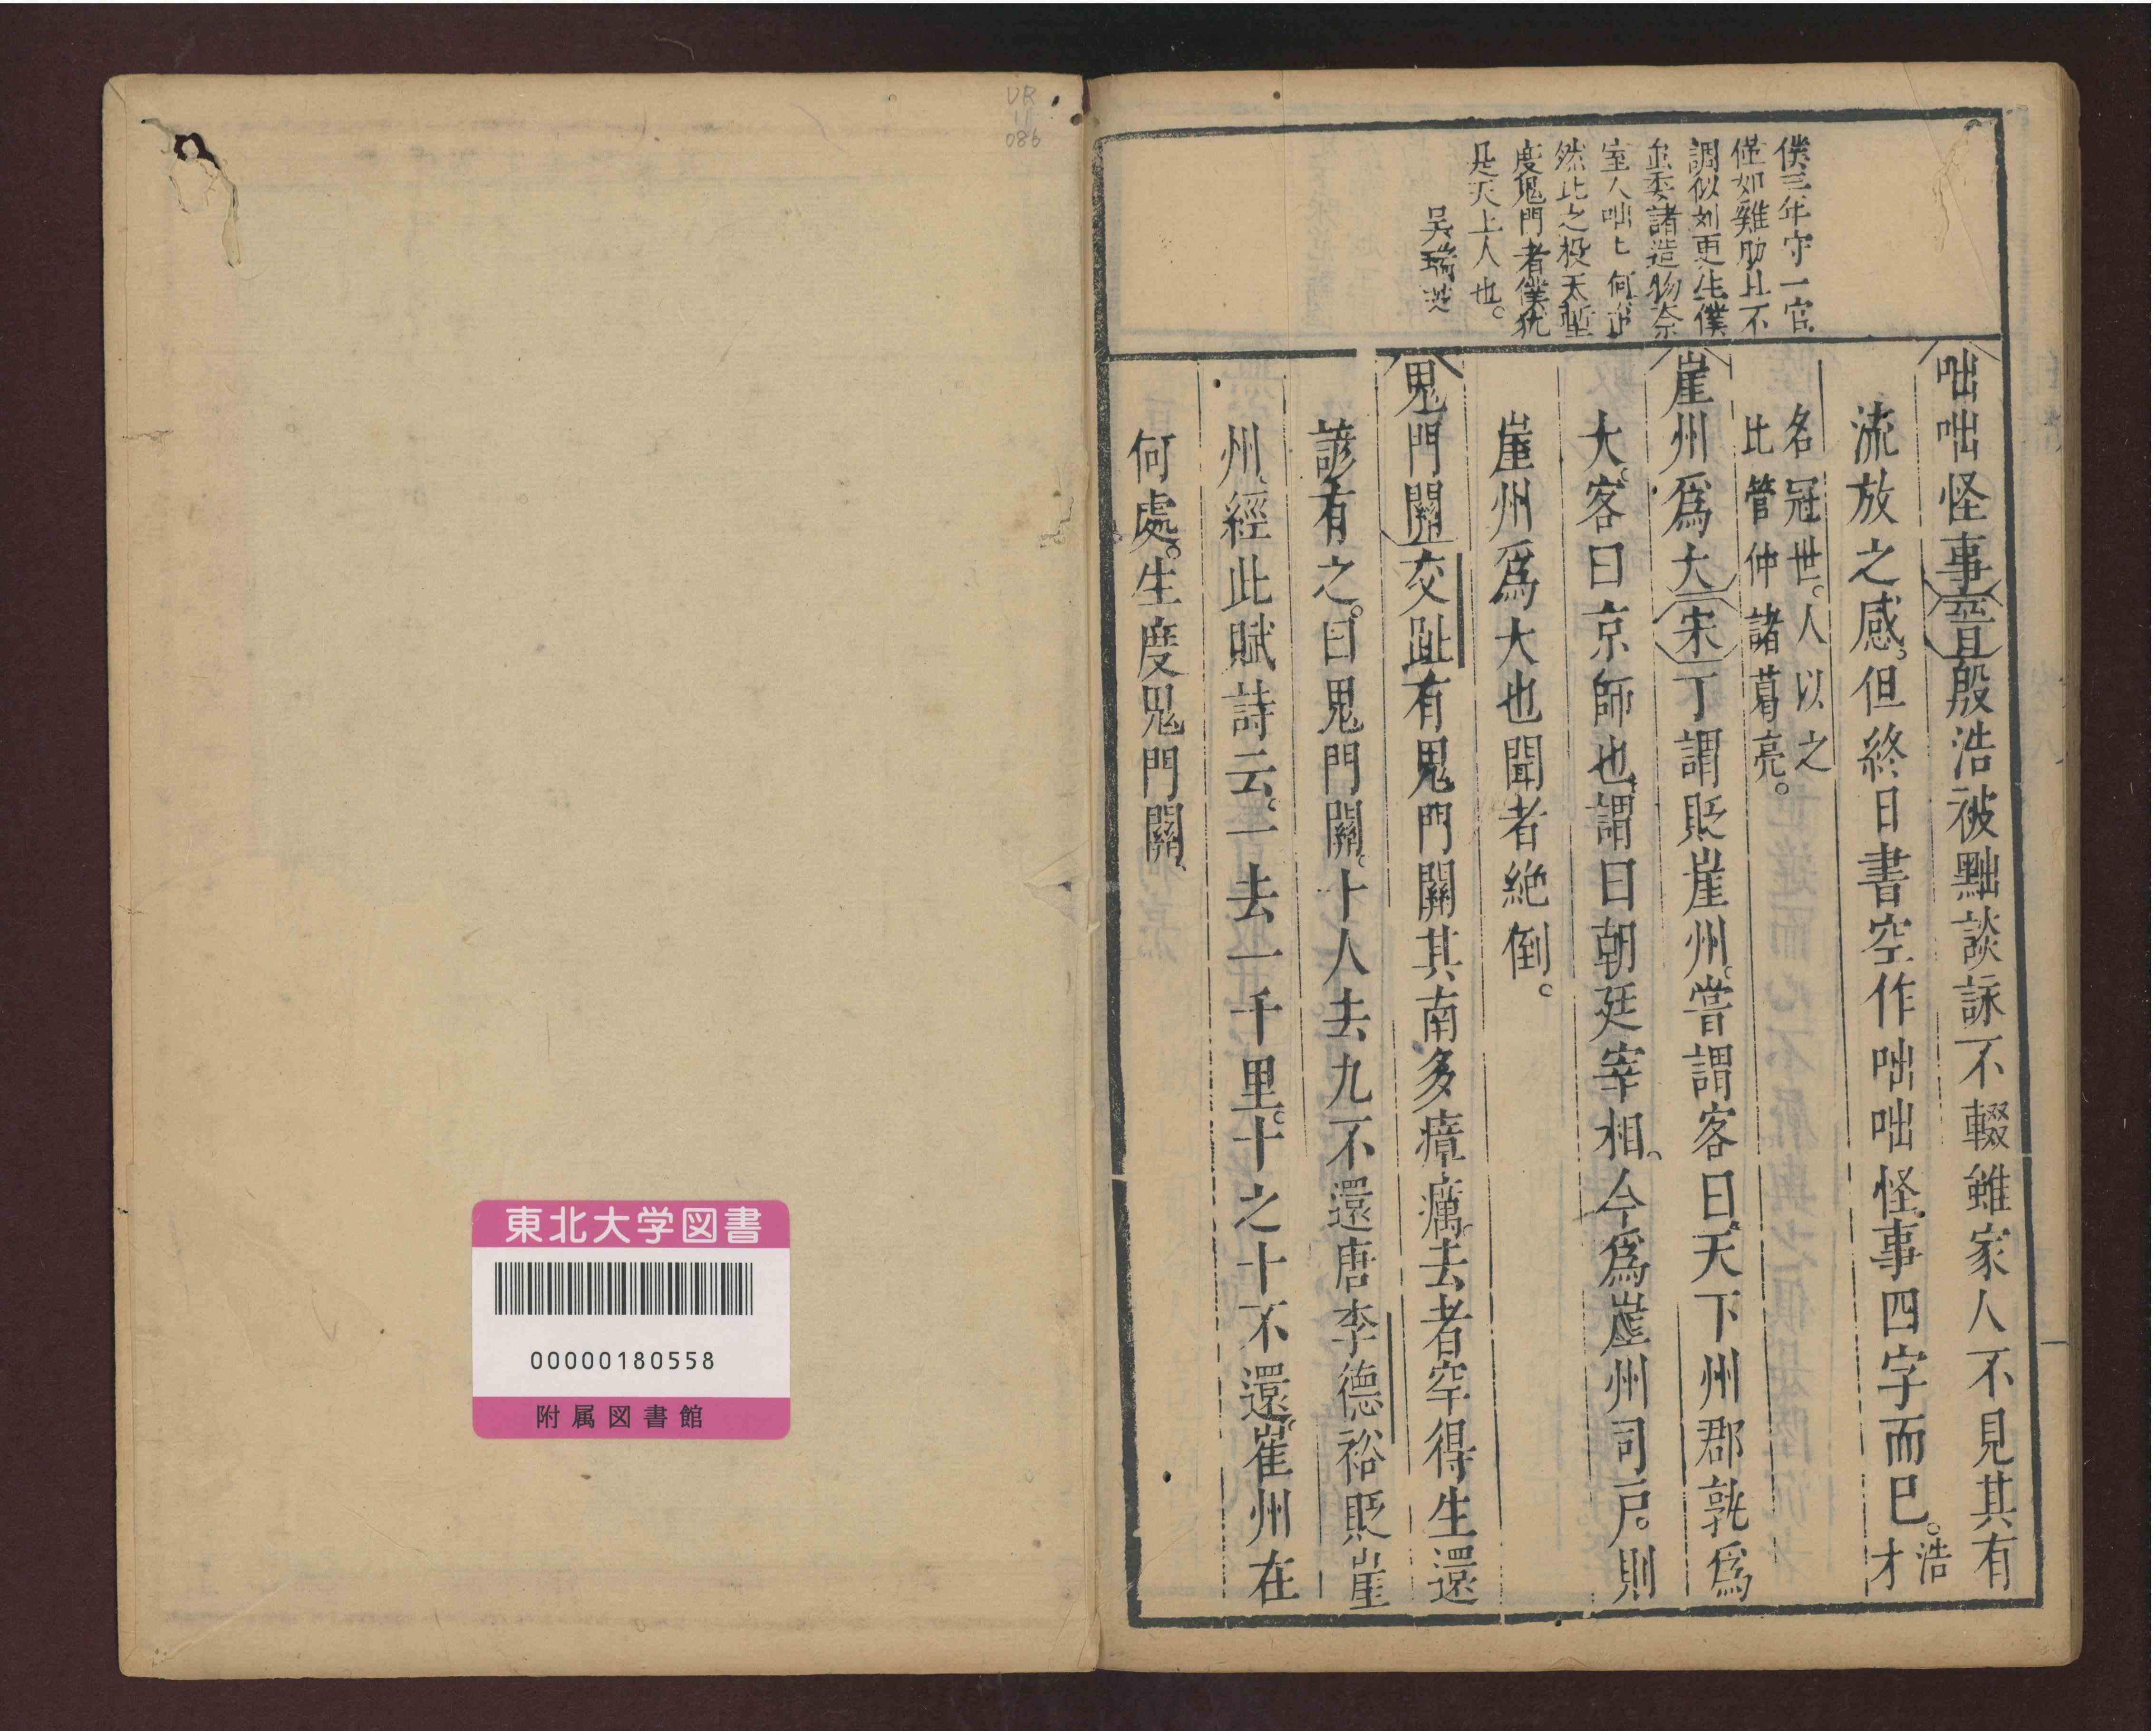 僕三年守一官
僅如雞肋且不
調似如更生僕
並委諸造物奈
室人咄〻何
然此之投天塹
度鬼門者僕犹
是天上人也。
吳瑞
咄咄怪事晉殷浩被黜談詠不輟雖家人不見其有
流放之感。但終日書空作咄咄怪事四字而已。浩才
名冠世。人以之
比管仲諸葛亮。
崖州爲大宋丁謂貶崖州。嘗謂客曰。天下州郡孰爲
大。客曰京師也。謂曰朝廷宰相。今爲崖州司戶。則
崖州爲大也聞者絶倒。
鬼門關交趾有鬼門關其南多瘴癘。去者罕得生還
諺有之。曰鬼門關。十人去九不還唐李德裕貶崖
州、經此賦詩云。一去一千里。十之十不還。崔州在
何處。生度鬼門關、
VR
086
東北大学図書
00000180558
附属図書館